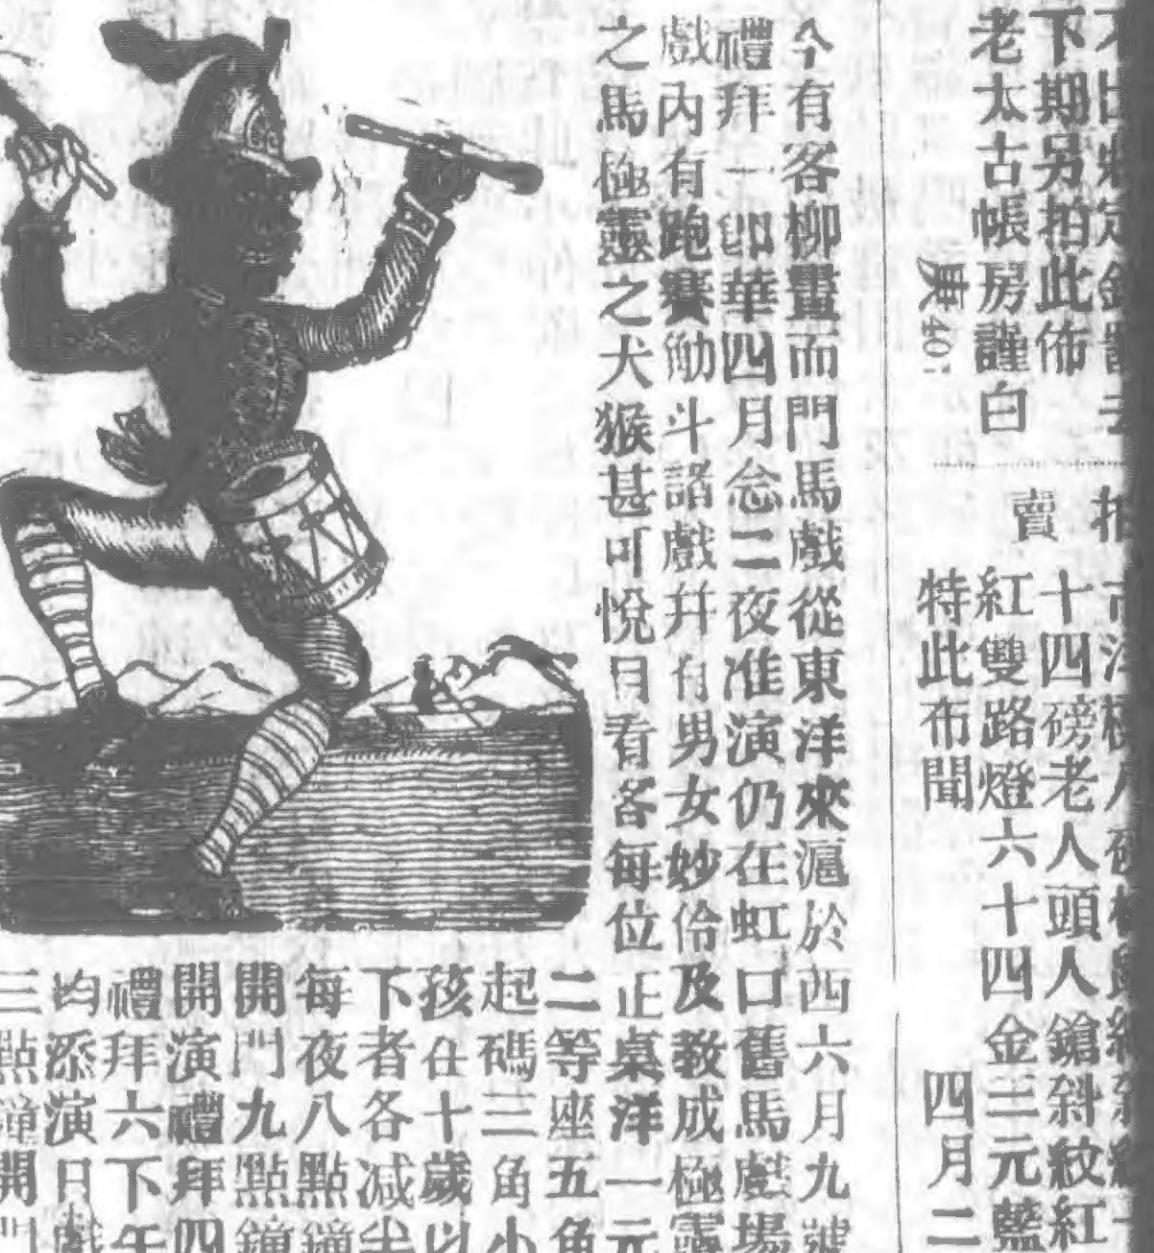 下期另拍此佈
老太古帳房謹白
40
賣
十四磅老人頭人鎗斜紋紅
紅雙路燈六十四金三元藍
特此布聞
四月二
今有客柳畫而門馬戲從東洋來滬於西六月九號
禮拜一即華四月念二夜准演仍在虹口舊馬戲場
戲內有跑賽觔斗諸戲并有男女妙伶及教成極靈
之馬極靈之犬猴甚可悅目看客每位正桌洋一元
二等座五角
起碼三角小
孩在十歲以
下者各减半
每夜八點鐘
開門九點鐘
開演禮拜四
禮拜六下午
均添演日戲
三點鐘開門